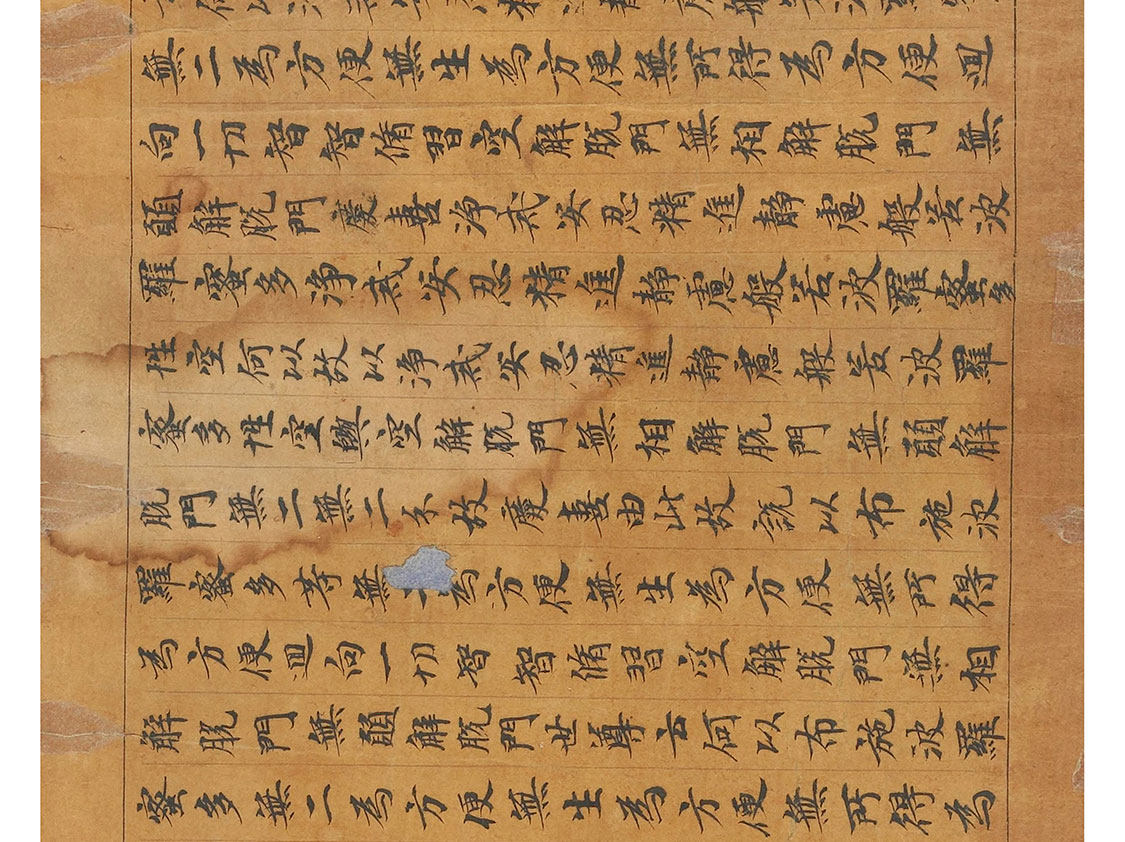 無二為方便無生為方便無所得為方便迴
向一切智智脩習空解脫門無相解脫門無
願解脫門慶喜淨戒安忍精進靜慮般若波
羅蜜多淨戒安忍精進靜慮般若波羅蜜多
性空何以故以淨戒安忍精進靜慮般若波羅
蜜多性空與空解脫門無相解脫門無願解
脫門無二無二分故慶喜由此故說以布施波
羅蜜多等無為方便無生為方便無所得
為方便迴向一切智智脩習空解脫門無相
解脫門無願解脫門世尊云何以布施波羅
蜜多無二為方便無生為方便無所得為